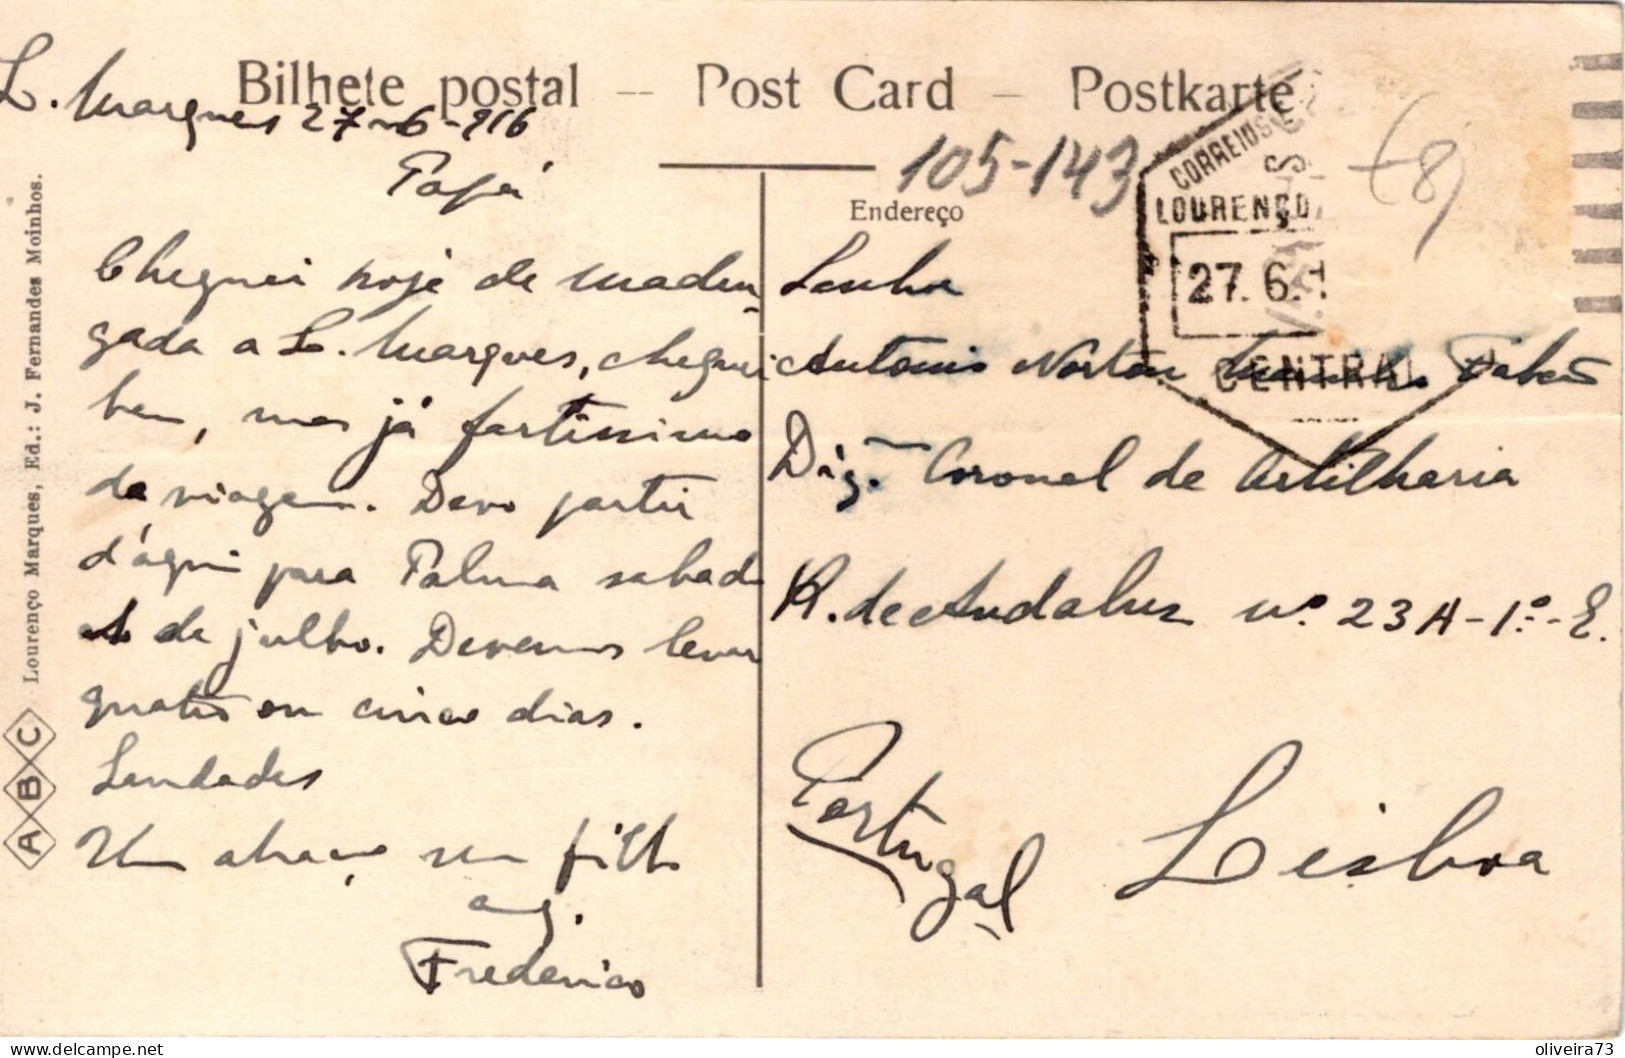 Bilhete postal -- Post Card -- Postkarte
L. Marques 27-6-916
Papá
Cheguei hoje de madru-
gada a L. Marques, cheguei
bem, mas já fartissimo
da viagem. Devo partir
d'aqui para Palma sabado
1 de julho. Devemos levar
quatro ou cinco dias.
Saudades
Um abraço seu filho
Frederico
105-143
(8)
Endereço
Antonio Norton
Dig.mo Coronel de Artilharia
R. de Andaluz nº 23A-1º-E.
Portugal
Lisboa
CORREIOS E
LOURENÇO
27.6.1
CENTRAL
Lourenço Marques, Ed.: J. Fernandes Moinhos.
A B C
delcampe.net
oliveira73